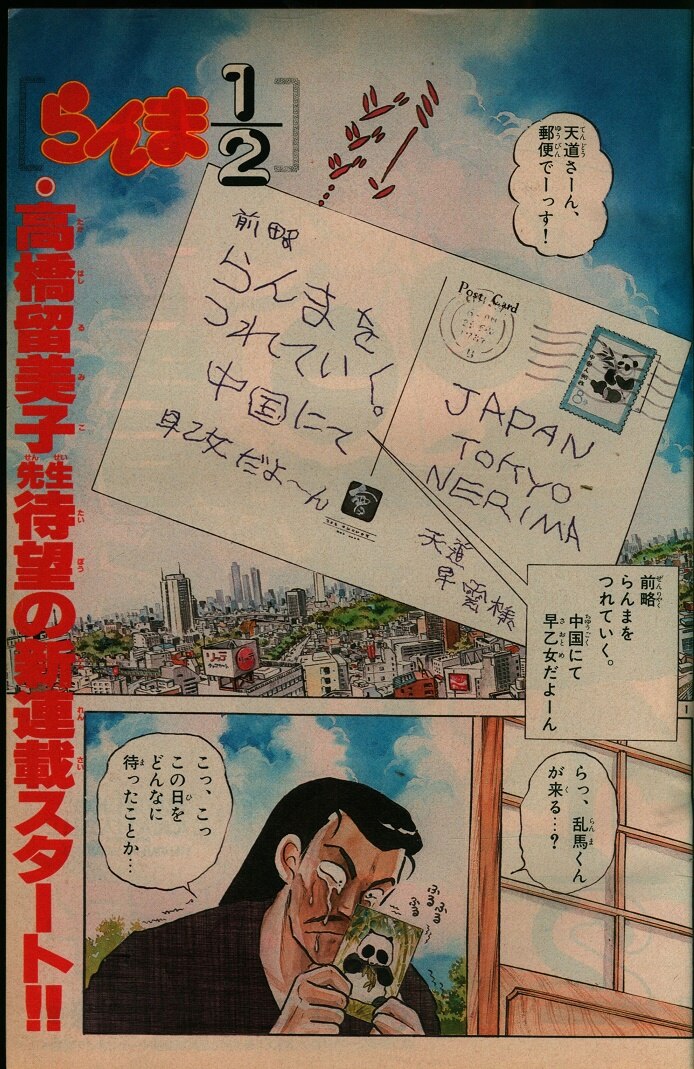 らんま1/2
・高橋留美子先生待望の新連載スタート!!
天道さーん、
郵便でーっす!
前略
らんまを
つれていく。
中国にて
早乙女だよ〜ん
Post Card
JAPAN
TOKYO
NERIMA
天道
早雲様
前略
らんまを
つれていく。
中国にて
早乙女だよーん
らっ、乱馬くん
が来る…?
こっ、こっ
この日を
どんなに
待ったことか…
ぷる
ぷる
ぷる